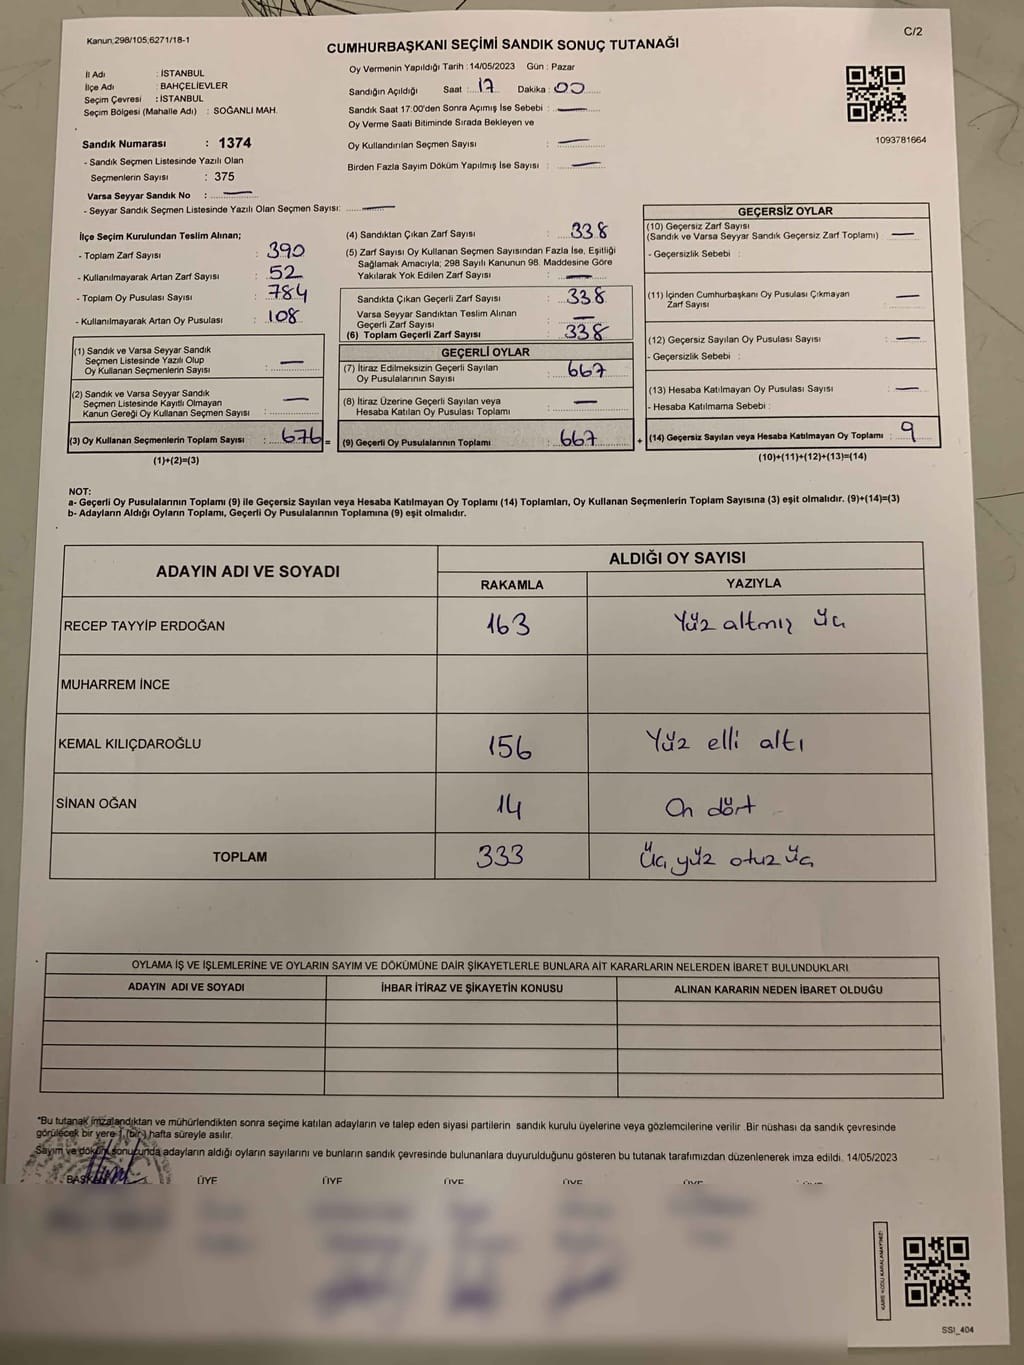 Kanun,298/105,6271/18-1
C/2
CUMHURBAŞKANI SEÇİMİ SANDIK SONUÇ TUTANAĞI
İl Adı : İSTANBUL
İlçe Adı : BAHÇELİEVLER
Seçim Çevresi : İSTANBUL
Seçim Bölgesi (Mahalle Adı) : SOĞANLI MAH.
Sandık Numarası : 1374
- Sandık Seçmen Listesinde Yazılı Olan
Seçmenlerin Sayısı : 375
Varsa Seyyar Sandık No : —
- Seyyar Sandık Seçmen Listesinde Yazılı Olan Seçmen Sayısı: —
Oy Vermenin Yapıldığı Tarih : 14/05/2023 Gün : Pazar
Sandığın Açıldığı Saat : 17 Dakika : 00
Sandık Saat 17:00'den Sonra Açımış İse Sebebi : —
Oy Verme Saati Bitiminde Sırada Bekleyen ve
Oy Kullandırılan Seçmen Sayısı : —
Birden Fazla Sayım Döküm Yapılmış İse Sayısı : —
1093781664
İlçe Seçim Kurulundan Teslim Alınan;
- Toplam Zarf Sayısı : 390
- Kullanılmayarak Artan Zarf Sayısı : 52
- Toplam Oy Pusulası Sayısı : 784
- Kullanılmayarak Artan Oy Pusulası : 108
(1) Sandık ve Varsa Seyyar Sandık
Seçmen Listesinde Yazılı Olup
Oy Kullanan Seçmenlerin Sayısı : —
(2) Sandık ve Varsa Seyyar Sandık
Seçmen Listesinde Kayıtlı Olmayan
Kanun Gereği Oy Kullanan Seçmen Sayısı : —
(3) Oy Kullanan Seçmenlerin Toplam Sayısı : 676 =
(1)+(2)=(3)
(4) Sandıktan Çıkan Zarf Sayısı : 338
(5) Zarf Sayısı Oy Kullanan Seçmen Sayısından Fazla İse, Eşitliği
Sağlamak Amacıyla; 298 Sayılı Kanunun 98. Maddesine Göre
Yakılarak Yok Edilen Zarf Sayısı : —
Sandıkta Çıkan Geçerli Zarf Sayısı : 338
Varsa Seyyar Sandıktan Teslim Alınan
Geçerli Zarf Sayısı : —
(6) Toplam Geçerli Zarf Sayısı : 338
GEÇERLİ OYLAR
(7) İtiraz Edilmeksizin Geçerli Sayılan
Oy Pusulalarının Sayısı : 667
(8) İtiraz Üzerine Geçerli Sayılan veya
Hesaba Katılan Oy Pusulası Toplamı : —
(9) Geçerli Oy Pusulalarının Toplamı : 667 +
GEÇERSİZ OYLAR
(10) Geçersiz Zarf Sayısı
(Sandık ve Varsa Seyyar Sandık Geçersiz Zarf Toplamı) : —
- Geçersizlik Sebebi :
(11) İçinden Cumhurbaşkanı Oy Pusulası Çıkmayan
Zarf Sayısı : —
(12) Geçersiz Sayılan Oy Pusulası Sayısı : —
- Geçersizlik Sebebi :
(13) Hesaba Katılmayan Oy Pusulası Sayısı : —
- Hesaba Katılmama Sebebi :
(14) Geçersiz Sayılan veya Hesaba Katılmayan Oy Toplamı : 9
(10)+(11)+(12)+(13)=(14)
NOT:
a- Geçerli Oy Pusulalarının Toplamı (9) ile Geçersiz Sayılan veya Hesaba Katılmayan Oy Toplamı (14) Toplamları, Oy Kullanan Seçmenlerin Toplam Sayısına (3) eşit olmalıdır. (9)+(14)=(3)
b- Adayların Aldığı Oyların Toplamı, Geçerli Oy Pusulalarının Toplamına (9) eşit olmalıdır.
ADAYIN ADI VE SOYADI
ALDIĞI OY SAYISI
RAKAMLA YAZIYLA
RECEP TAYYİP ERDOĞAN 163 Yüz altmış üç
MUHARREM İNCE
KEMAL KILIÇDAROĞLU 156 Yüz elli altı
SİNAN OĞAN 14 On dört
TOPLAM 333 Üç yüz otuz üç
OYLAMA İŞ VE İŞLEMLERİNE VE OYLARIN SAYIM VE DÖKÜMÜNE DAİR ŞİKAYETLERLE BUNLARA AİT KARARLARIN NELERDEN İBARET BULUNDUKLARI
ADAYIN ADI VE SOYADI İHBAR İTİRAZ VE ŞİKAYETİN KONUSU ALINAN KARARIN NEDEN İBARET OLDUĞU
*Bu tutanak imzalandıktan ve mühürlendikten sonra seçime katılan adayların ve talep eden siyasi partilerin sandık kurulu üyelerine veya gözlemcilerine verilir .Bir nüshası da sandık çevresinde
görülecek bir yere 1 (bir) hafta süreyle asılır.
Sayım ve döküm sonucunda adayların aldığı oyların sayılarını ve bunların sandık çevresinde bulunanlara duyurulduğunu gösteren bu tutanak tarafımızdan düzenlenerek imza edildi. 14/05/2023
ÜYE ÜYE ÜYE ÜYE ÜYE
KARE KODU KARALAMAYINIZ!
SSI_404